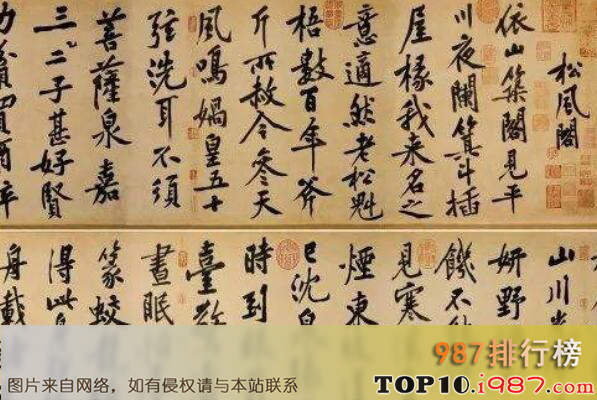 松風閣
依山築閣見平
川夜闌箕斗插
屋椽我來名之
意適然老松魁
梧數百年斧
斤所赦今參天
風鳴媧皇五十
弦洗耳不須
菩薩泉嘉
三二子甚好賢
力貧買酒醉
山川光
妍野
饑不
見寒
煙東
已沈
時到
臺
晝眠
篆蛟
得此
舟載
987排行榜
图片来自网络，如有侵权请与本站联系
TOP10.i987.com